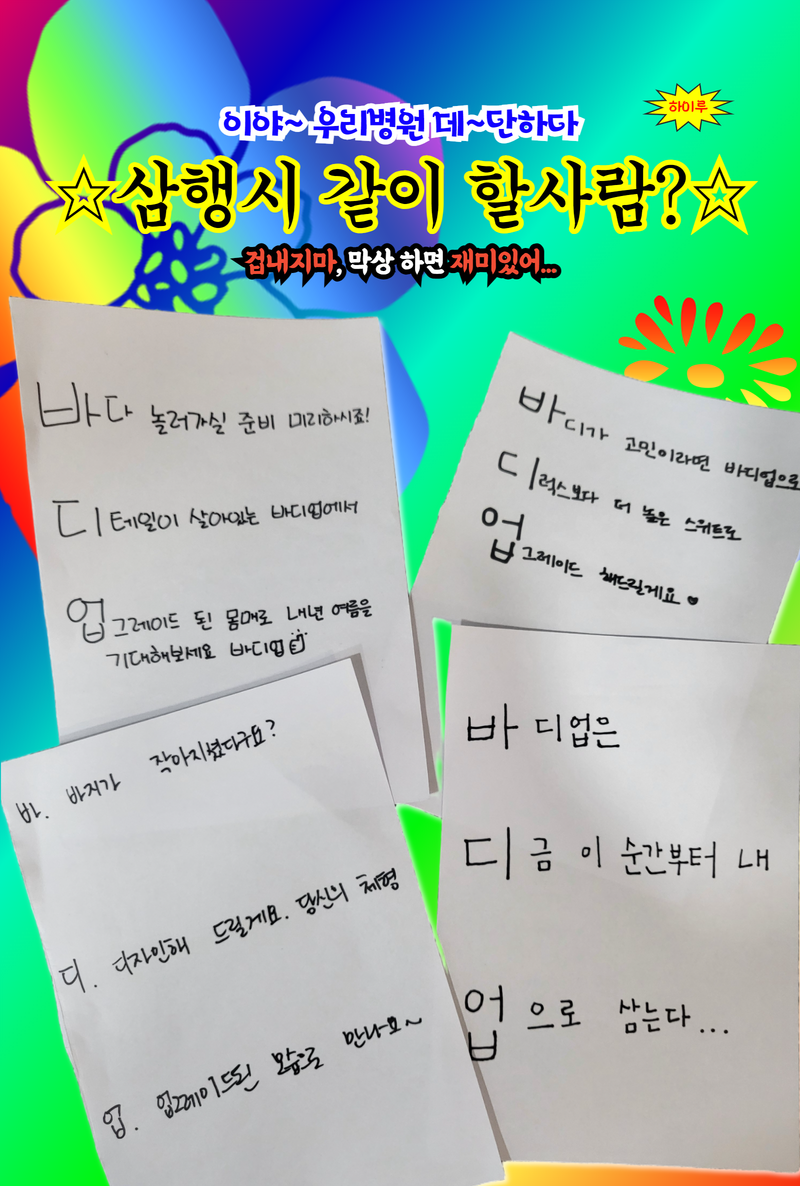 이야~ 우리병원 데~단하다
하이루
☆삼행시 같이 할사람?☆
겁내지마, 막상 하면 재미있어...
바다 놀러가실 준비 미리하시죠!
디테일이 살아있는 바디업에서
업그레이드 된 몸매로 내년 여름을
기대해보세요 바디업
바디가 고민이라면 바디업으로
디럭스보다 더 높은 스위트로
업그레이드 해드릴게요
바. 바지가 작아지셨다구요?
디. 디자인해 드릴게요. 당신의 체형
업. 업그레이드된 모습으로 만나요~
바디업은
디금 이 순간부터 내
업으로 삼는다...